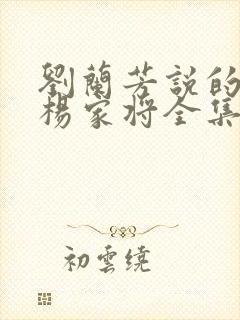 劉蘭芳説的
楊家將全集
初雲繞